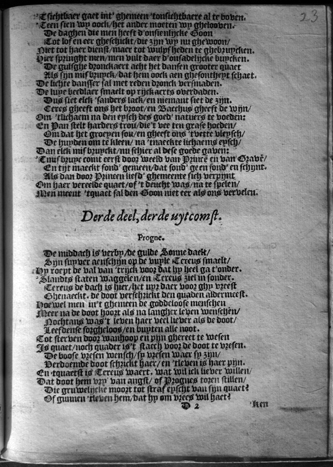 23
Tsichtbaer gaet int' ghemein 'tonsichtbaere al te boven.
Teen sien wy oock, het ander moeten wy ghelooven.
De daghen die men heeft d'onsienlijcke Goon
Tot lof en eer gheschickt, die zijn wy nu ghewoon/
Niet tot haer dienst, maer tot wulpsheden te ghebruycken.
Hier springht men/ men vult daer d'onsadelijcke buycken.
De gulsighe dronckaert acht het bansen grooter quaet
Als zijn misbruyck/ dat hem oock aen ghesontheyt schaet.
De lichte vreucht die men siet reden versmaden.
De luye
Dus siet elck 'sanders lack/ en niemant siet de zijn.
Ceres gheeft ons het broot/ en Bacchus gheeft de wijn/
Om 'tlichaem na den eysch des goed' naturs te voeden:
En Pan stelt harders trou/ die 't vee ten grase hoeden/
Om dat het groeyen sou/ en gheeft ons 't vette vleysch/
De huyden om te kleen/ na 'tnaeckte lichaems eysch/
Dan elck misbruyckt nu schier al dese goede gaven:
'Tmisbruyc comt eerst door weeld van Princē en van Gravē/
En tijt maeckt sond' gemeen/ dat sond' geen sond en schijnt.
Als dan door Princen liefd' ghemeente sich verpijnt
Om haer vereelde quaet/ of 't deucht was/ na te spelen/
Men meent 'tquaet sal den Goon niet eer als ons vervelen.
Derde deel, derde uytcomst.
Progne.
De middach is verby/ de gulde Sonne daelt/
Zijn suyver aenschijn op de vuyle Tereus straelt/
Hy roept de val van 'trijck voor dat hy heel ga t'onder.
'Slandts staten waggelen/ en Tereus ziel in sonder.
Tereus de dach is hier/ het uyr daer voor ghy vreest
Ghenaeckt. de doot verschrickt den quaden aldermeest.
Hoewel men in't ghemeen de goddeloose menschen
Meer na de doot hoort als na langher leven wenschen/
Nochtans was't leven haer veel liever als de doot/
Leefdense sorgheloos/ en buyten alle noot.
Tot sterven door wanhoop en pijn gheneet te wesen
Is quaet/noch quader is't staech voor de doot te vresen.
De boose vresen wensch/ sy vresen waer sy zijn/
Verdoemde doot schrickt haer/ en 'tleven is haer pijn.
En tquaetst is Tereus waert. wat wil ick liever willen/
Dat doot hem vry van angst/ of Prognes toren stillen/
Die grouwelijcke moort tot straf eyscht van zijn quaet?
Of gunnen 'tleven hem/ dat hy om vrees wil haet?
D 2
Ken